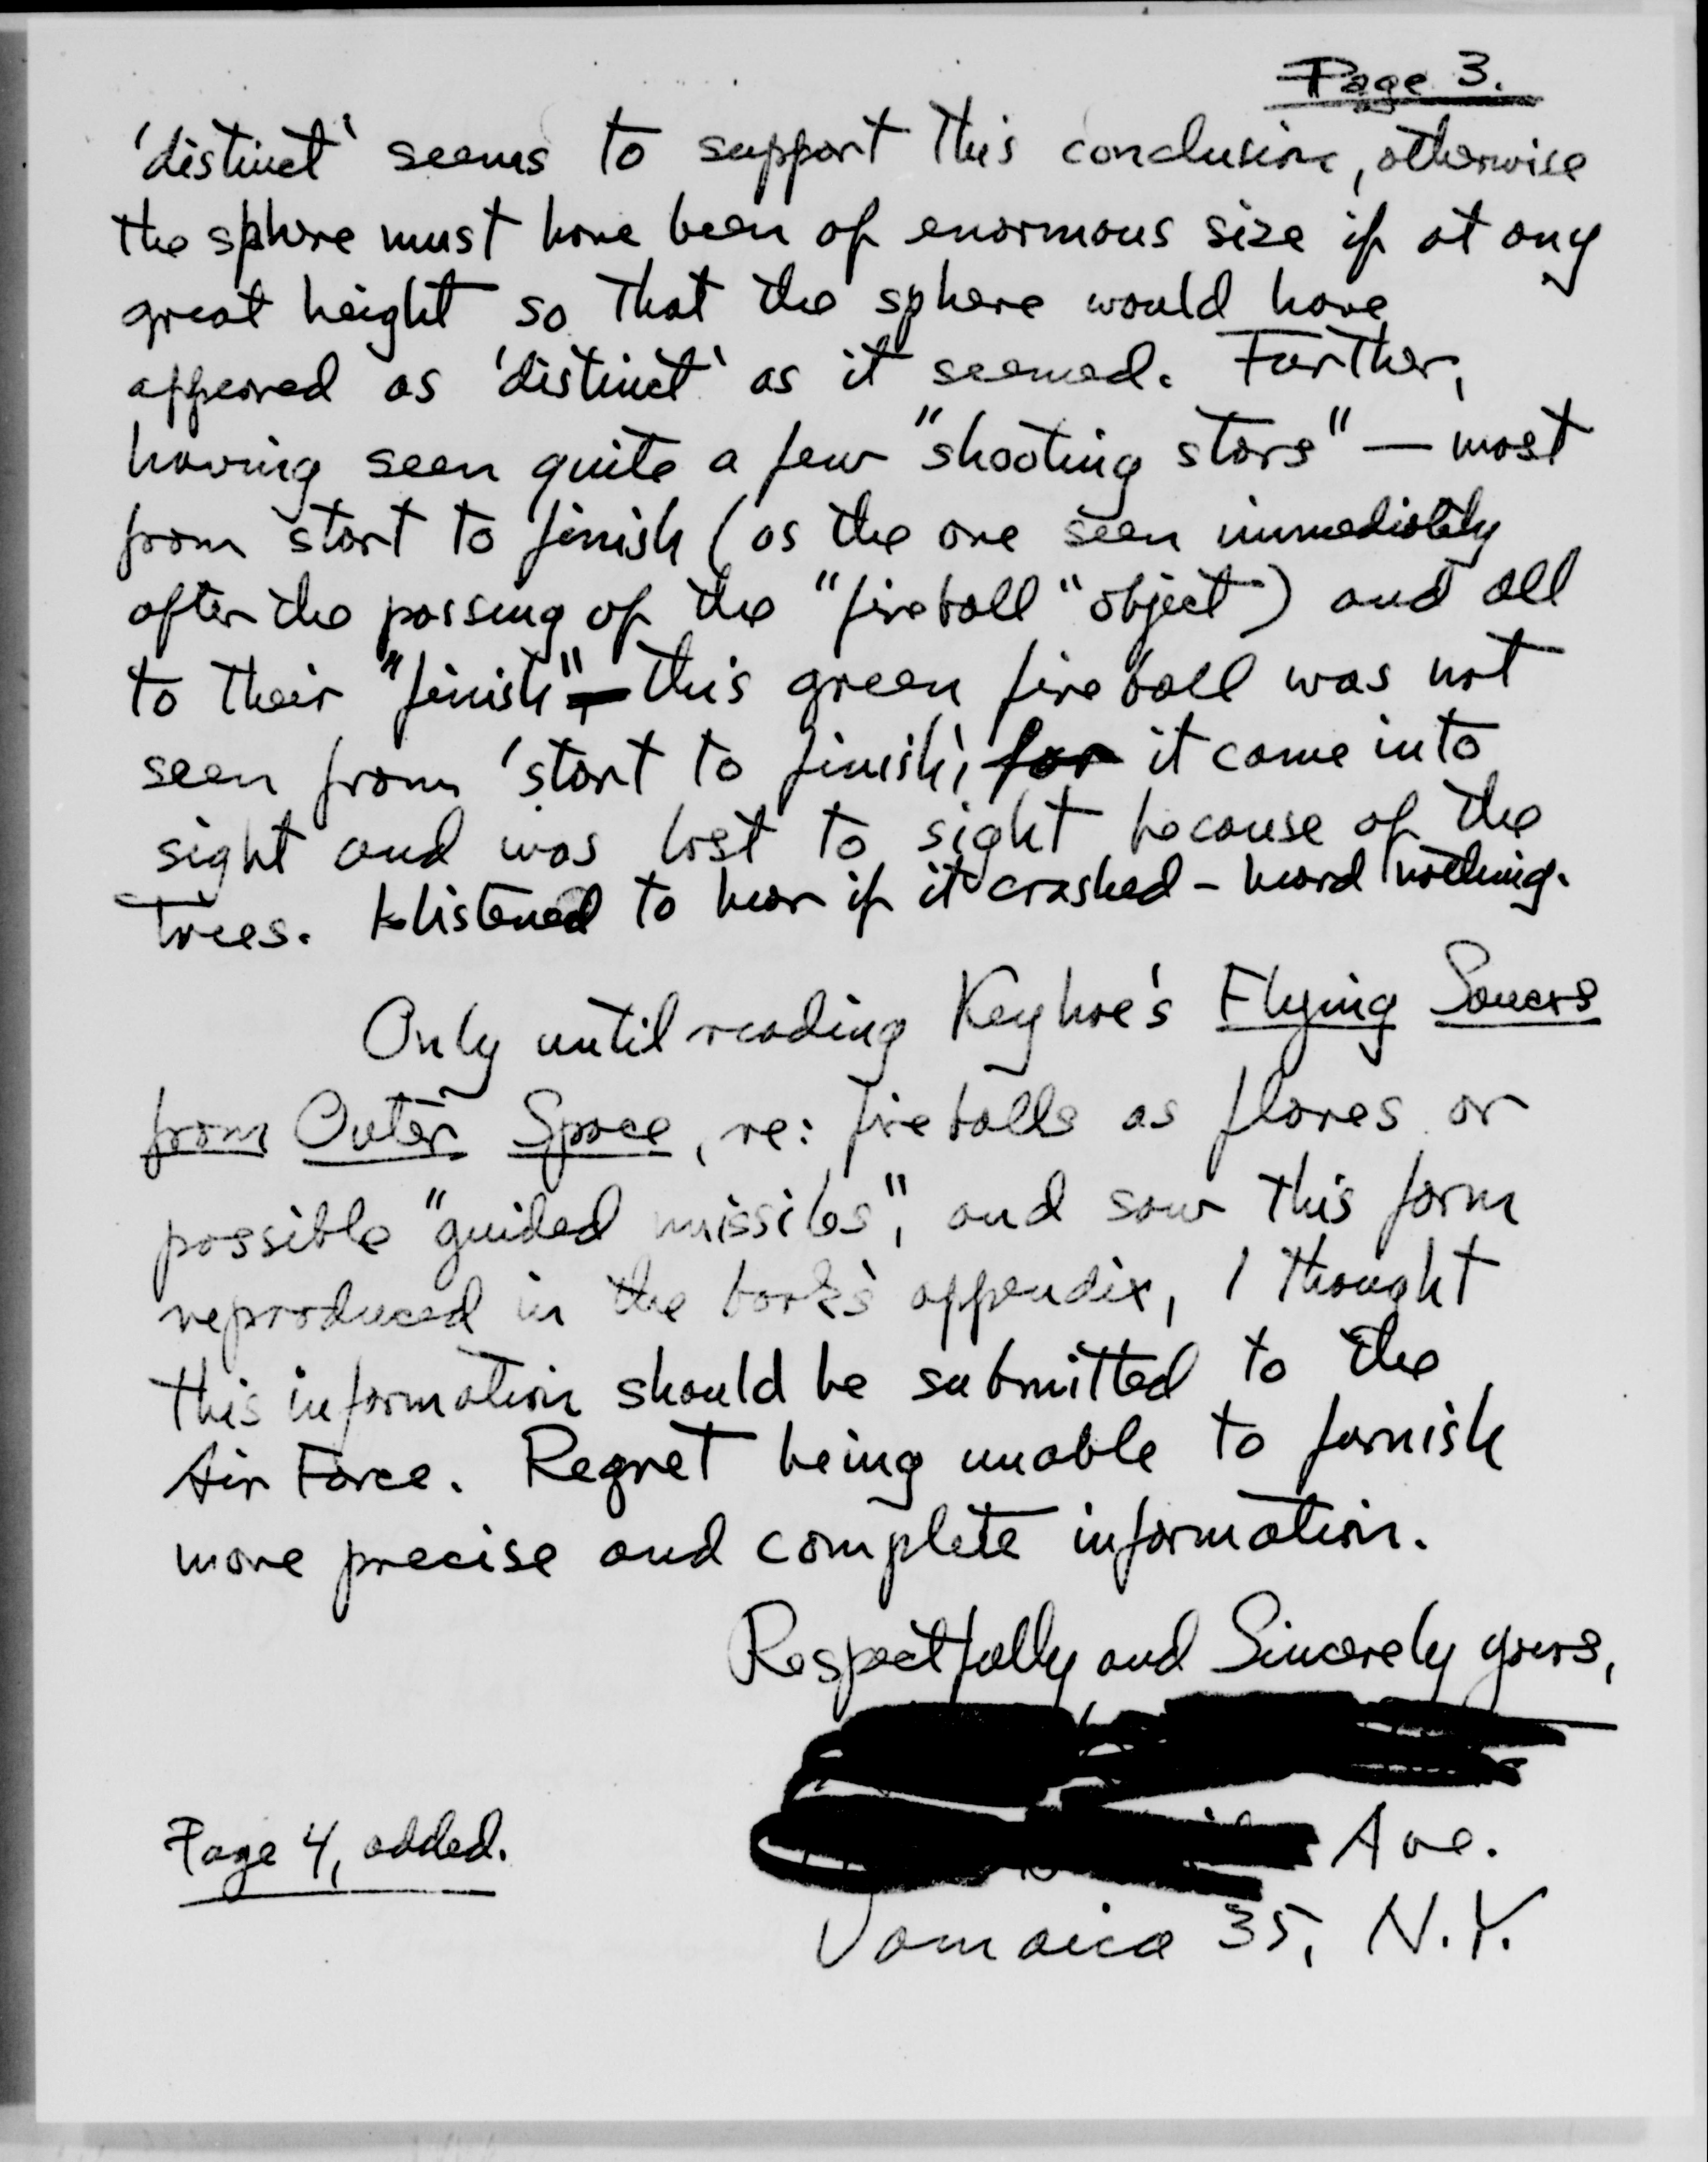 Page 3.
'distinct' seems to support this conclusion, otherwise
the sphere must have been of enormous size if at any
great height so that the sphere would have
appeared as 'distinct' as it seemed. Further,
having seen quite a few "shooting stars" — most
from start to finish (as the one seen immediately
after the passing of the "fireball" object) and all
to their "finish" — this green fireball was not
seen from 'start to finish', for it came into
sight and was lost to sight because of the
trees. I listened to hear if it crashed - heard nothing.
Only until reading Keyhoe's Flying Saucers
from Outer Space, re: fireballs as flares or
possible "guided missiles", and saw this form
reproduced in the book's appendix, I thought
this information should be submitted to the
Air Force. Regret being unable to furnish
more precise and complete information.
Respectfully and Sincerely yours,
Ave.
Page 4, added.
Jamaica 35, N.Y.